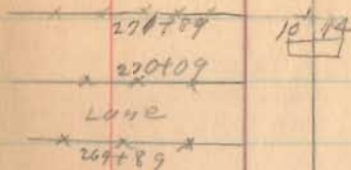 271+89
10' 14
270+09
Lane
269+89